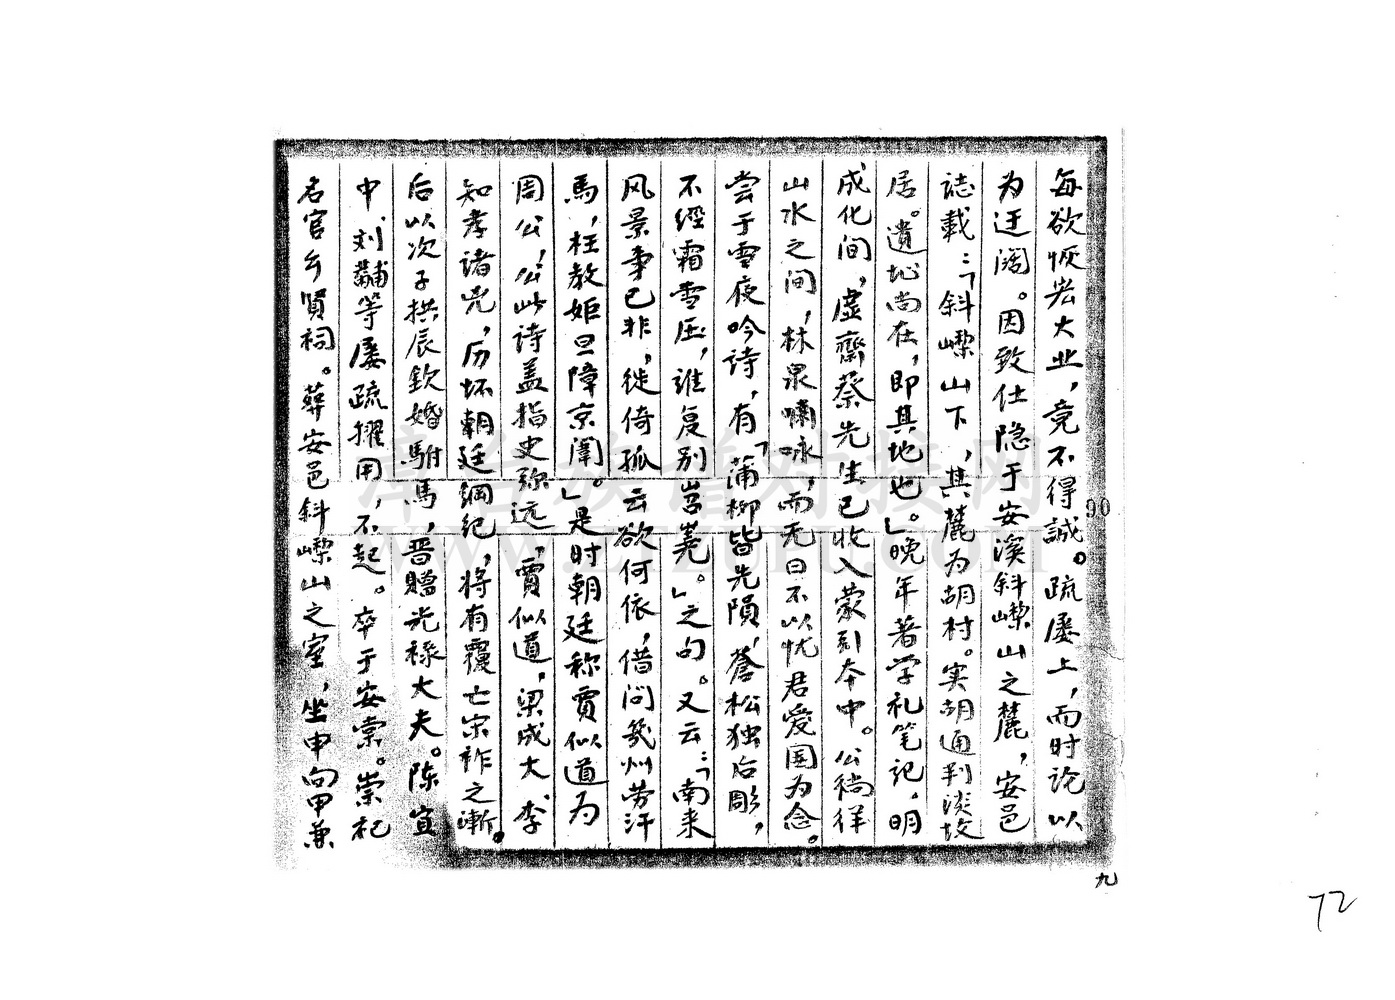 每欲恢宏大业，竟不得誠。疏屡上，而时论以
为迂闊。因致仕隐于安溪斜嶫山之麓，安邑
誌載：「斜嶫山下，其麓为胡村。实胡通判淡故
居。遺址尚在，即其地也。」晚年著学礼笔记，明
成化间，虚齋蔡先生已收入蒙引本中。公徜徉
山水之间，林泉嘯咏，而无日不以忧君爱国为念。
尝于雪夜吟诗，有「蒲柳皆先隕，蒼松独后彫，
不經霜雪压，谁复别岧荛。」之句。又云：「南来
风景事已非，徙倚孤云欲何依，借问幾州劳汗
馬，枉教姬旦障京闈。」是时朝廷称賈似道为
周公，公此诗盖指史弥远，賈似道，梁成大，李
知孝诸兇，历坏朝廷綱纪，将有覆亡宋祚之漸。
后以次子拱辰欽婚駙馬，晋贈光禄大夫。陈宜
中，刘黼等屡疏擢用，不起。卒于安祟。崇祀
名宦乡賢祠。葬安邑斜嶫山之室，坐申向甲兼
90
九
72
库台族谱对接网
www.ZTZUPU.COM